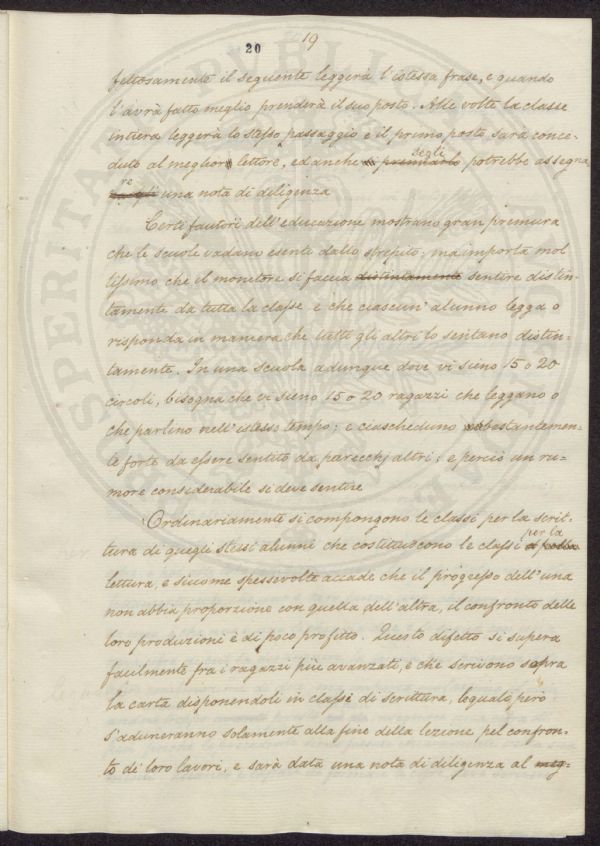 20 19
fettosamente il seguente leggerà l'istessa frase, e quando
l'avrà fatto meglio prenderà il suo posto. Alle volte la classe
intiera leggerà lo stesso passaggio e il primo posto sarà conce-
duto al miglior lettore, ed anche premiarlo segli potrebbe assegna
re una nota di diligenza
Certi fautori dell'educazione mostrano gran premura
che le scuole vadano esente dallo strepito; ma importa mol
tissimo che il monitore si faccia distintamente sentire distin-
tamente da tutta la classe e che ciascun' alunno legga o
risponda in maniera che tutti gli altri lo sentano distin-
tamente. In una scuola adunque dove vi sieno 15 o 20
circoli, bisogna che vi sieno 15 o 20 ragazzi che leggano o
che parlino nell'istesso tempo; e ciascheduno abbastantemen-
te forte da essere sentito da parecchj altri; e perciò un ru-
more considerabile si deve sentire
Ordinariamente si compongono le classi per la scrit-
tura di quegli stessi alunni che costituiscono le classi per la
lettura, e siccome spessevolte accade che il progresso dell'una
non abbia proporzione con quella dell'altra, il confronto delle
loro produzioni è di poco profitto. Questo difetto si supera
facilmente fra i ragazzi più avanzati, e che scrivono sopra
la carta disponendoli in classi di scrittura, lequali però
s'aduneranno solamente alla fine della lezione pel confron-
to de' loro lavori, e sarà data una nota di diligenza al meg-